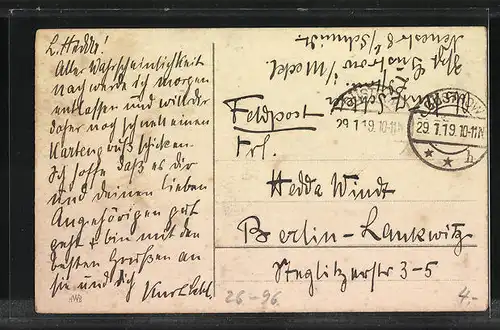 L. Hedde!
Aller Wahrscheinlichkeit
nach werde ich morgen
entlassen und will dir
daher noch schnell einen
Kartengruß schicken.
Ich hoffe daß es dir
und deinen lieben
Angehörigen gut
geht & bin mit den
besten Grüßen an
sie und dich
Kurt
Güstrow i/Meckl
Schmidt
Feldpost
29.1.19.10-11
29.1.19.10-11N
* * b
Frl.
Hedda Windt
Berlin-Lankwitz
Steglitzerstr 3-5
26-96
4.-